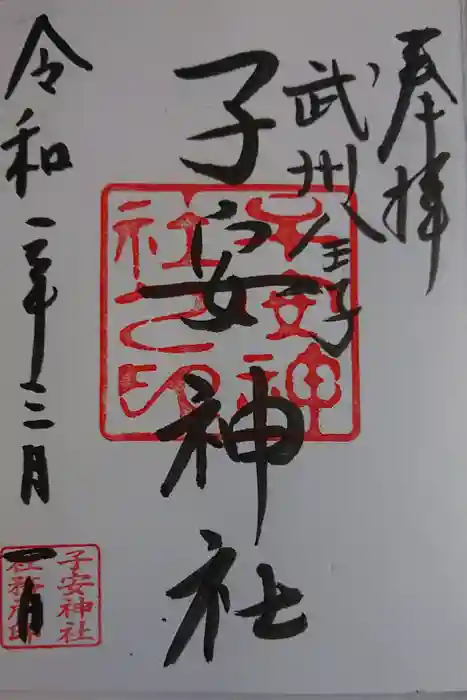 奉拝
武州八王子
子安神社
子安神社之印
令和二年三月一日
子安神社
社務所印